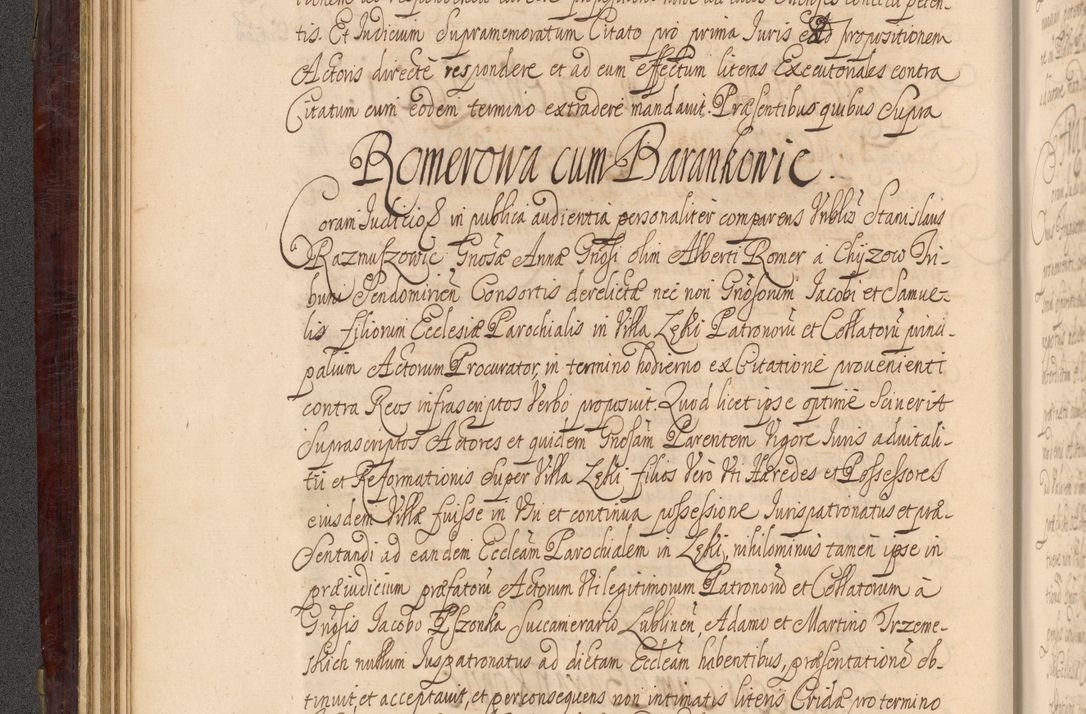 tis. Et Iudicium Supramemoratum Citato pro prima Iuris ad propositionem
Actoris directè respondere et ad eum effectum literas Executoriales contra
Citatum cum eodem termino extradere mandavit. Præsentibus quibus Supra
Romerowa cum Barankowic.
Coram Iudicio in publica audientia personaliter comparens Nobilis Stanislaus
Razmuszowic Gnosæ Annæ Gnosi olim Alberti Romer a Chyzow Tri-
buni Sendomirien̄ Consortis derelictæ nec non Gnosorum Iacobi et Samue-
lis filiorum Ecclesiæ Parochialis in Villa Zęki Patronorū et Collatorū princi-
palium Actorum Procurator, in termino hodierno ex Citatione provenienti
contra Reos infrascriptos Verbo proposuit. Quod licet ipse optimè Sciverit
Suprascriptos Actores et quidem Gnosam Parentem Vigore Iuris advitali-
tii et Reformationis Super Villa Zęki, filios Vero Vti Hæredes et Possessores
eiusdem Villæ fuisse in Vsu et continua possessione Iurispatronatus et præ-
Sentandi ad eandem Eccleam Parochialem in Zęki, nihilominus tamen ipse in
præiudicium præfatorū Actorum Vti legitimorum Patronorū et Collatorum à
Gnosis Iacobo Pszonka Succamerario Lublinen̄, Adamo et Martino Trzeme-
skich nullum Iuspatronatus ad dictam Eccleam habentibus, præsentationē ob-
tinuit, et acceptavit, et per consequens non intimatis literis Cridæ pro termino